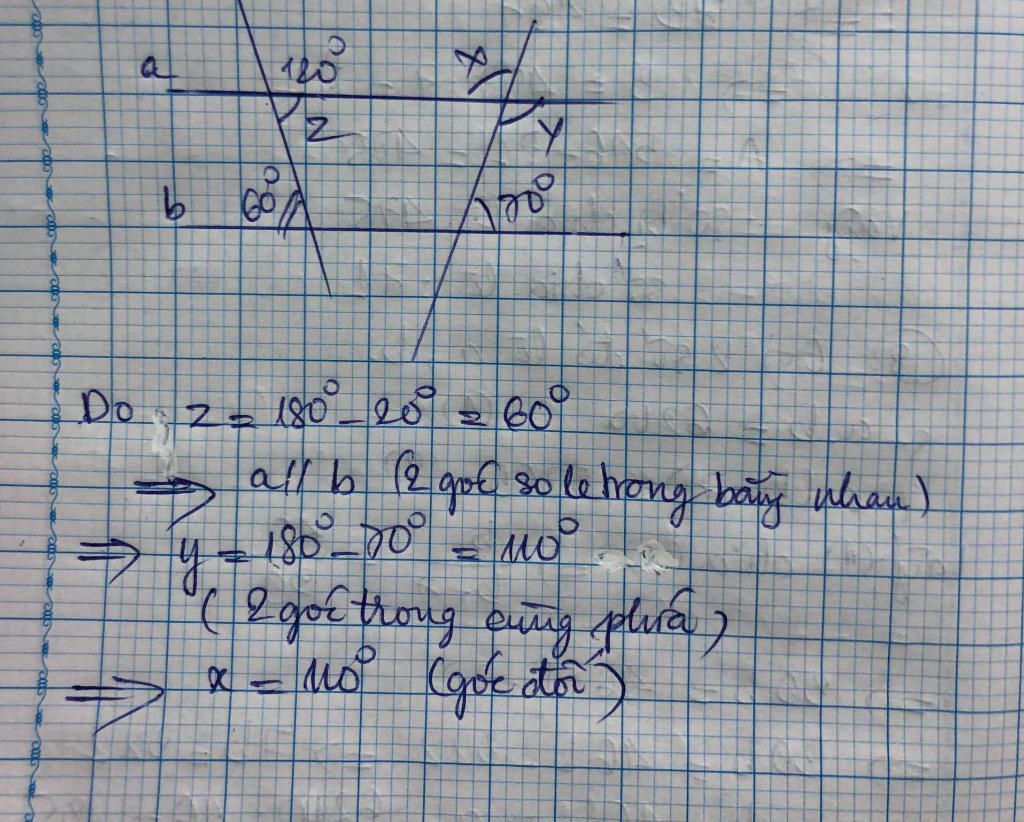 a 120° x
z y
b 60° 70°
Do z = 180° - 20° = 60°
⇒ a // b (2 góc so le trong bằng nhau)
⇒ y = 180° - 70° = 110°
(2 góc trong cùng phía)
⇒ x = 110° (góc đối)